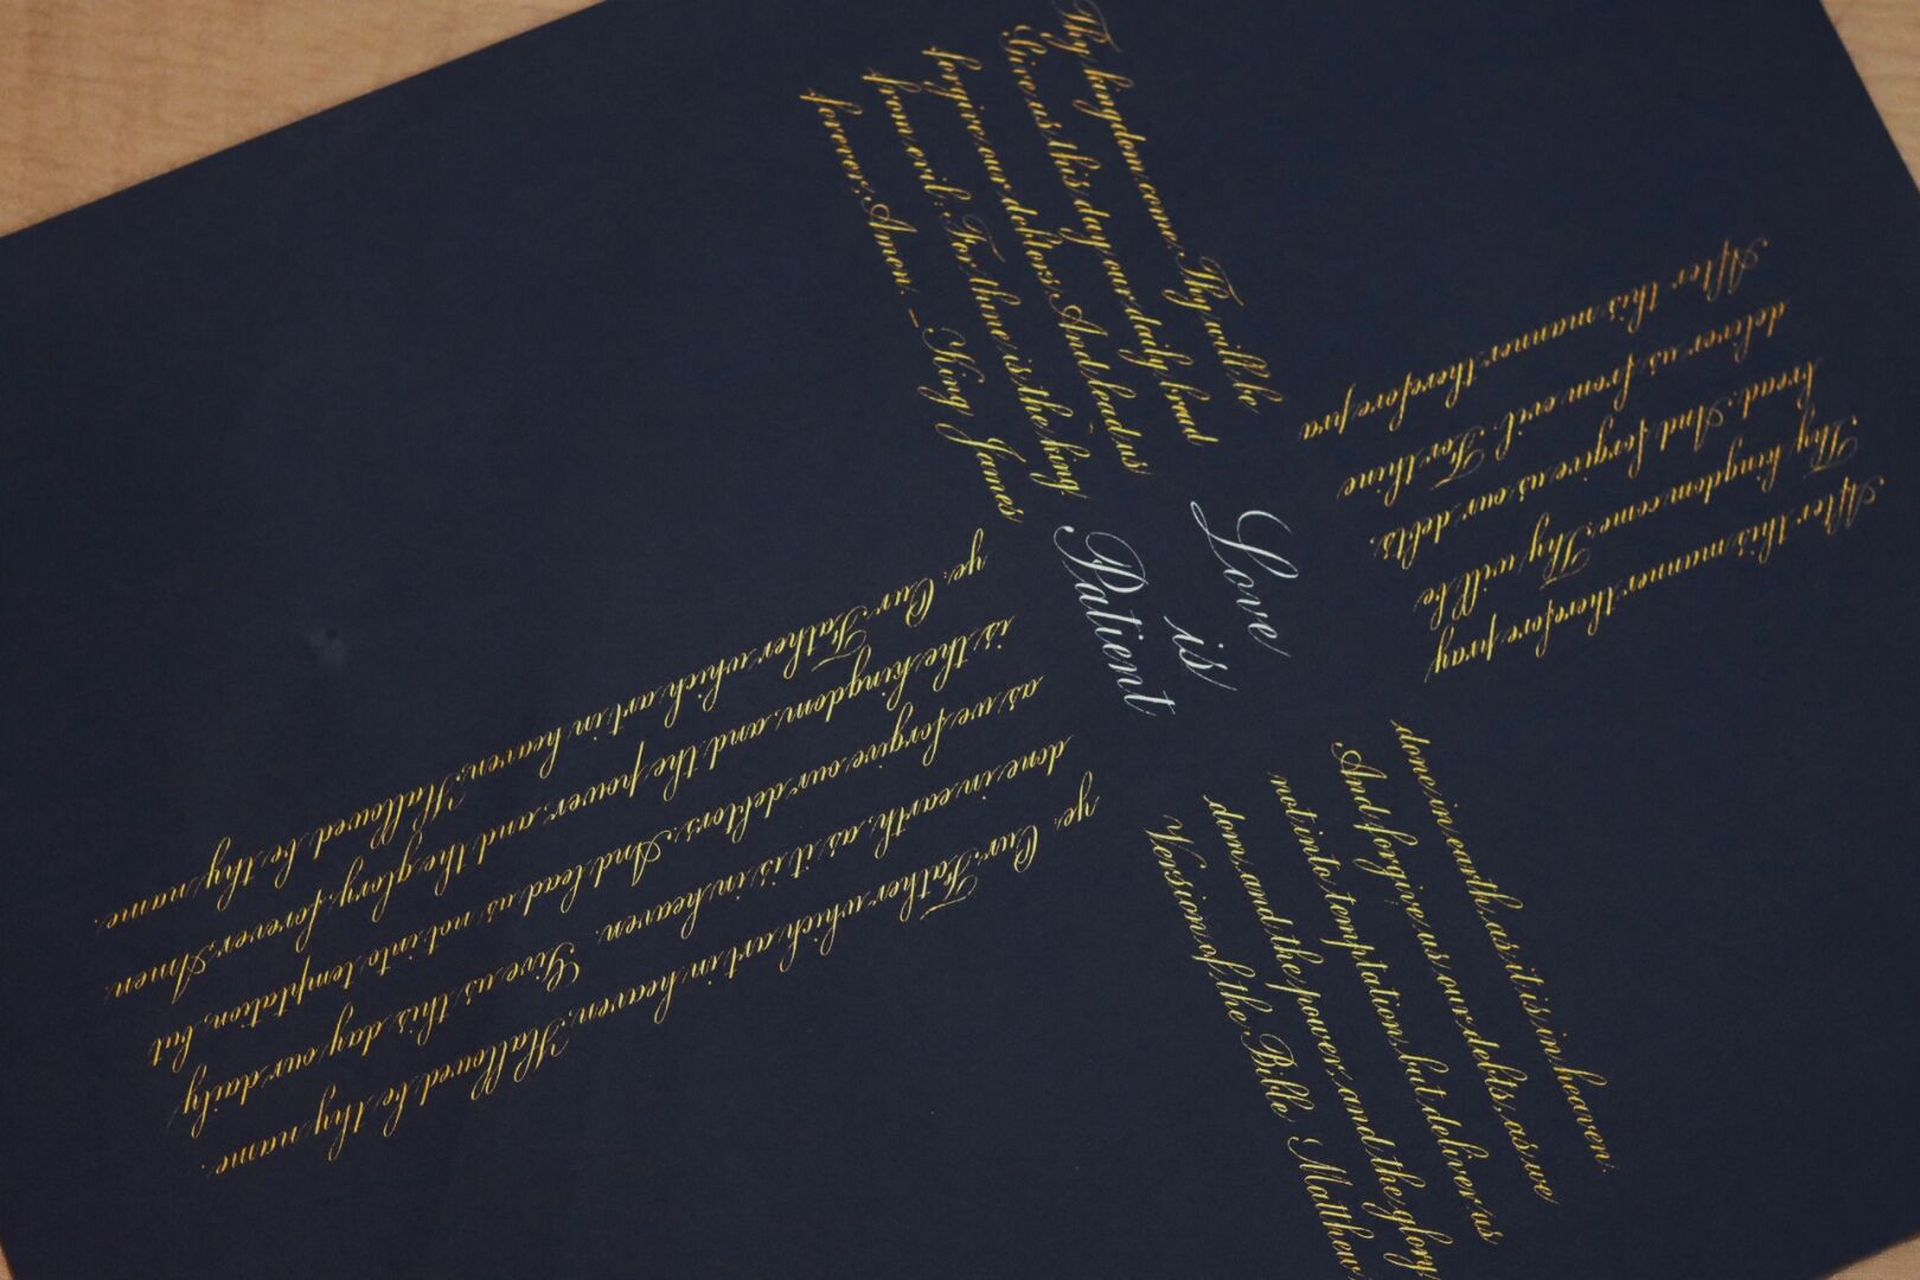 Thy kingdom come. Thy will be
Give us this day our daily bread
forgive our debtors. And lead us
from evil: For thine is the king
forever. Amen. _ King James
Love
is
Patient
done in earth, as it is in heaven.
And forgive us our debts, as we
not into temptation, but deliver us
dom, and the power, and the glory
Version of the Bible, Matthew
After this manner therefore pray
Thy kingdom come. Thy will be
bread. And forgive us our debts,
deliver us from evil: For thine
After this manner therefore pra
ye: Our Father which art in heaven, Hallowed be thy name.
done in earth, as it is in heaven. Give us this day our daily
as we forgive our debtors. And lead us not into temptation, but
is the kingdom, and the power, and the glory, forever. Amen.
ye: Our Father which art in heaven, Hallowed be thy name.